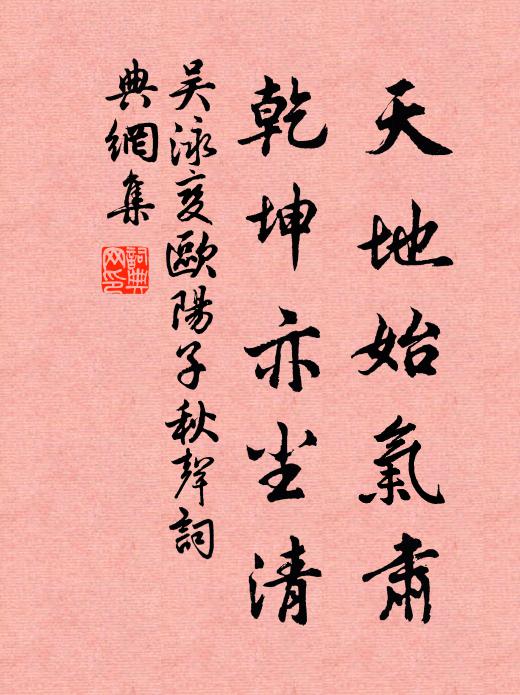 天地始氣肅
乾坤亦坐清
吴泳变歐陽子秋聲詞
典網集
詞典
网印